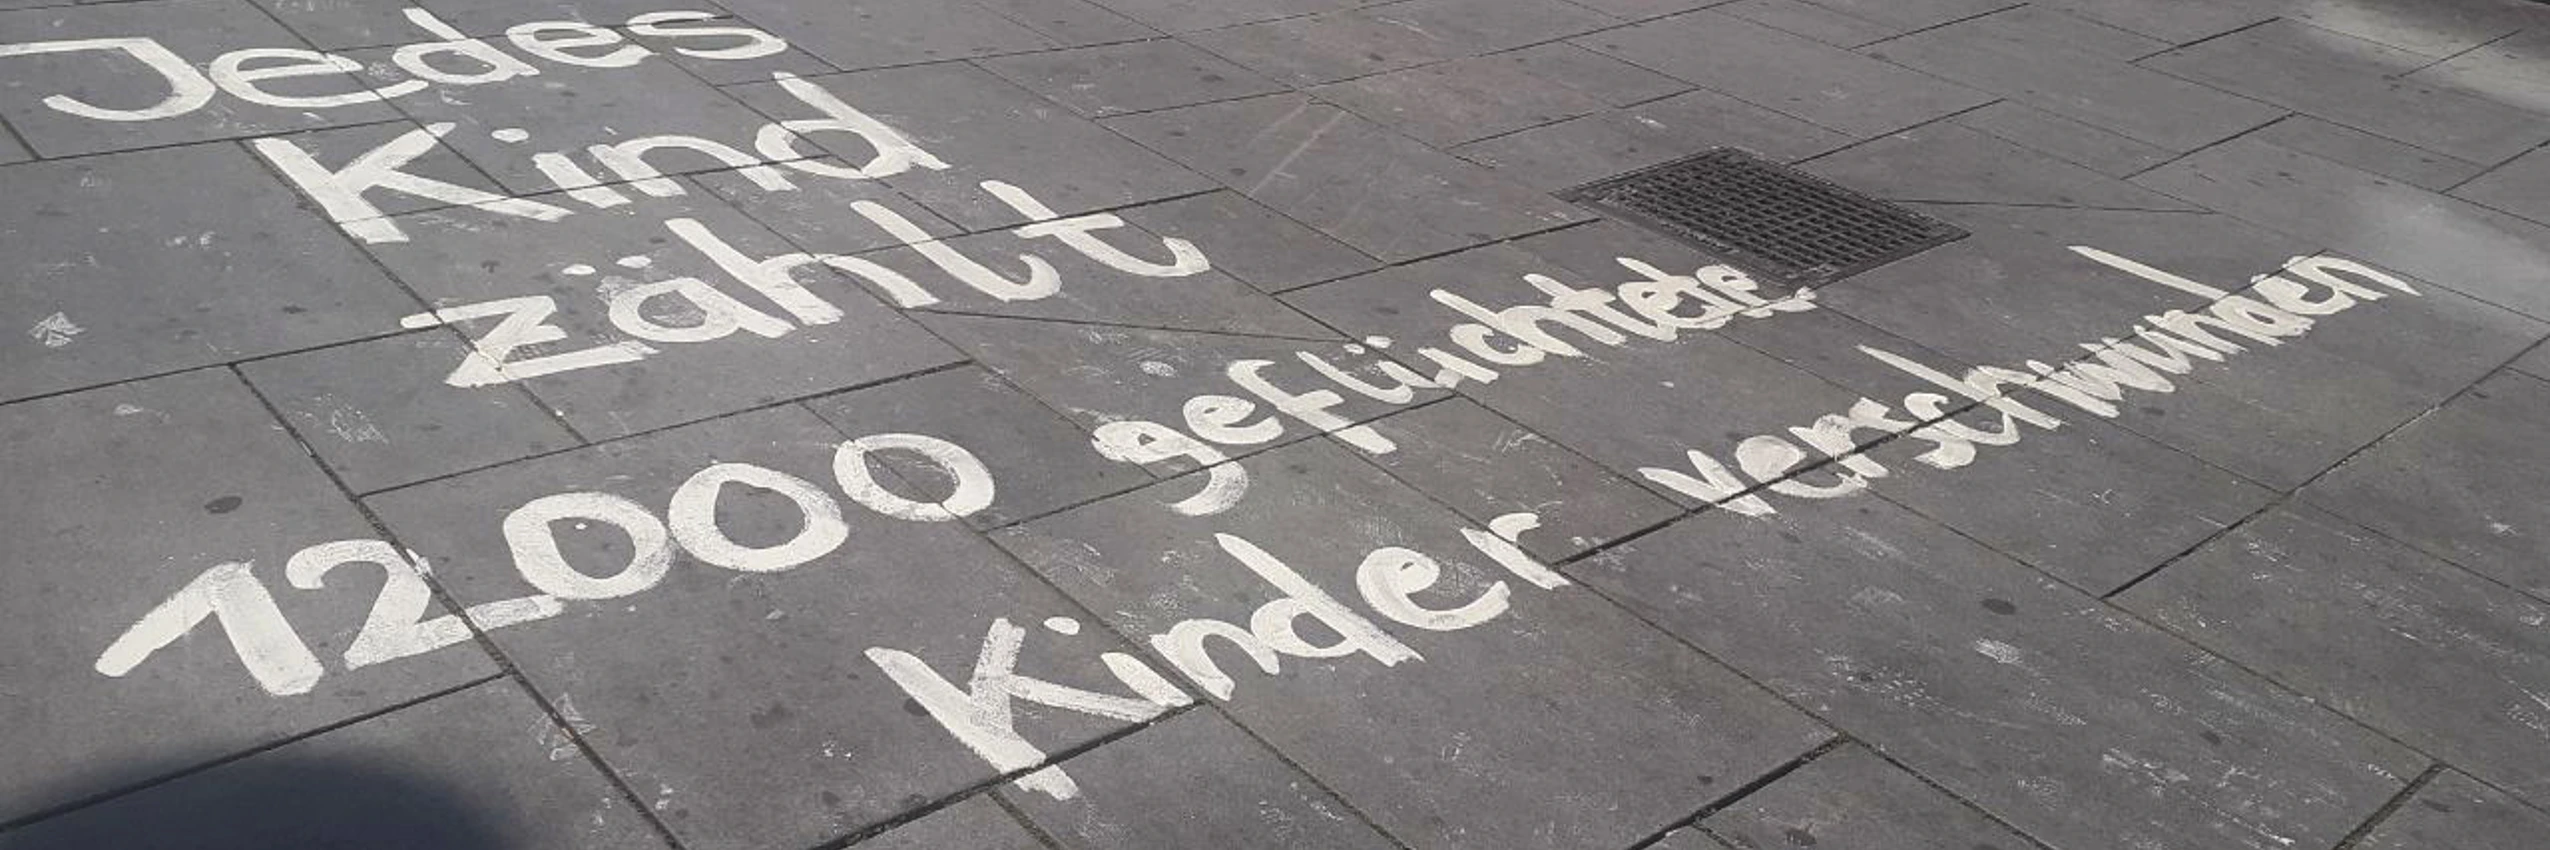 Jedes
Kind
zählt
12.000 geflüchtete
Kinder verschwunden